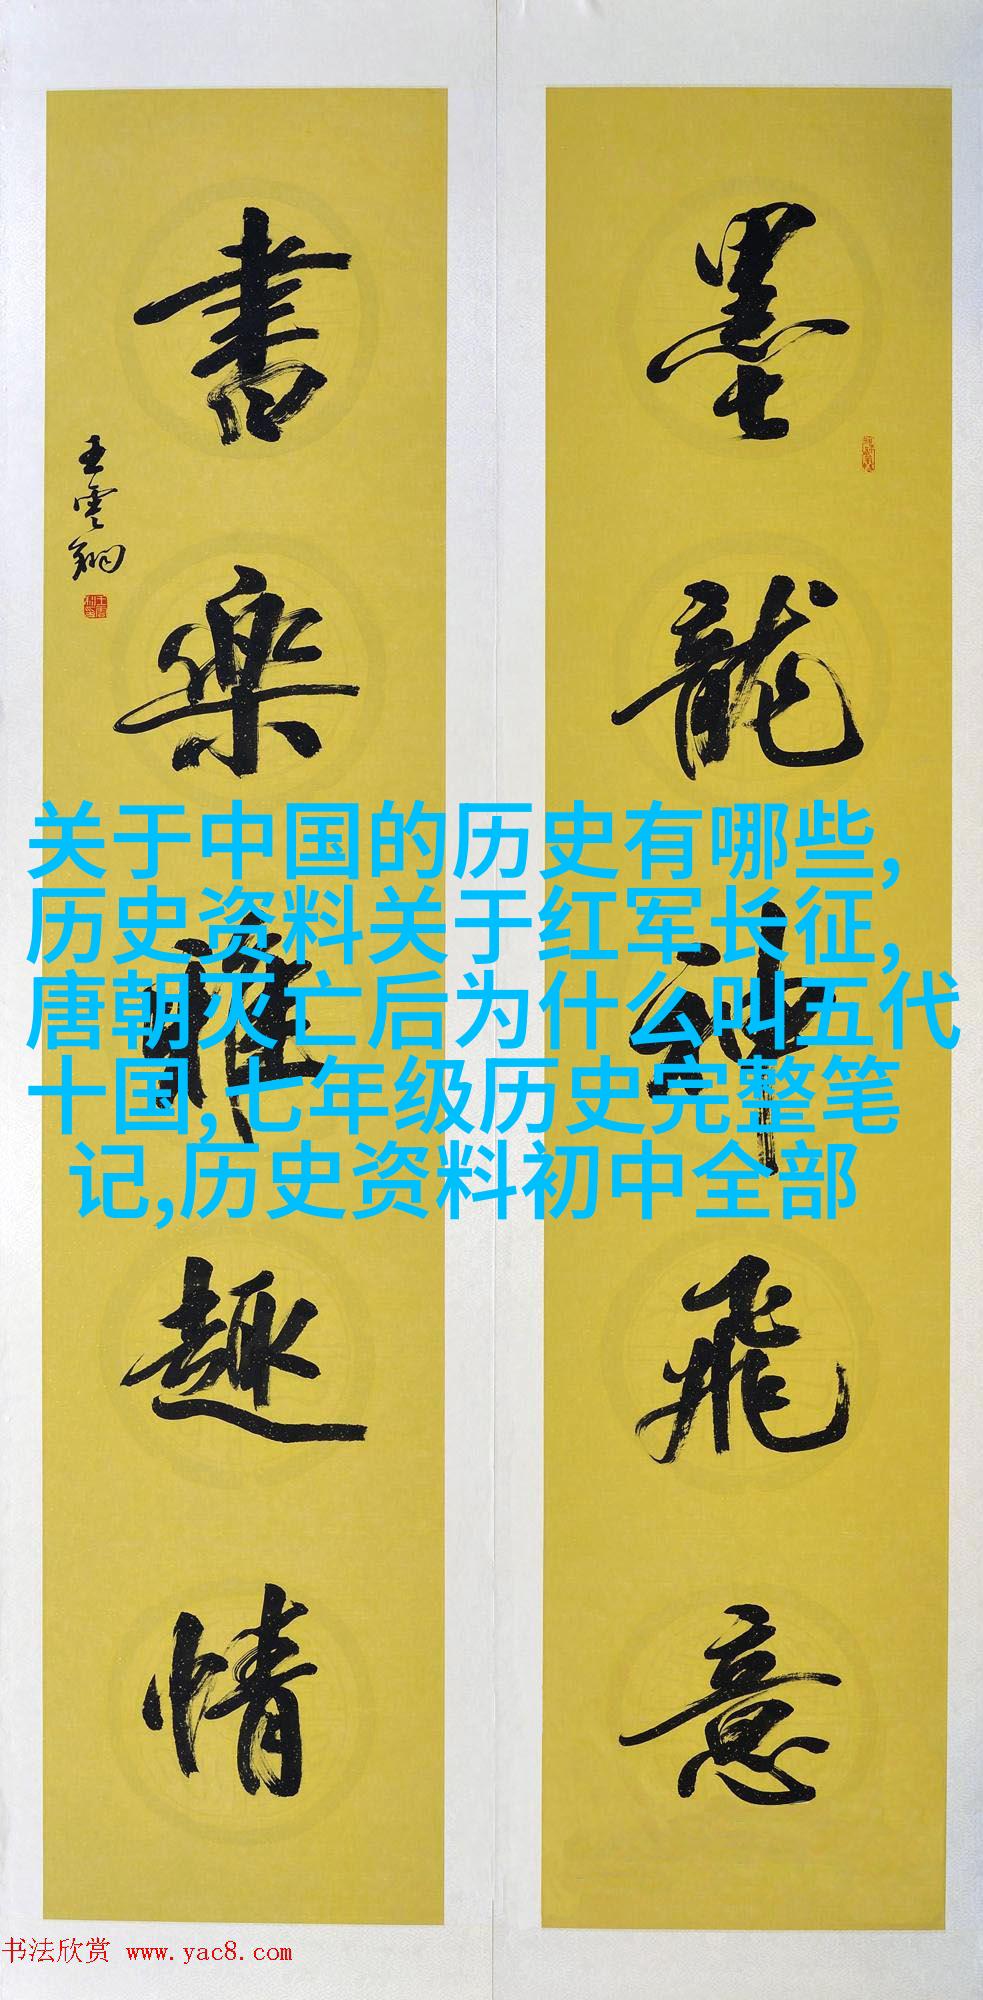 墨龍神飛意
書樂雅趣情
王雲翔
关于中国的历史有哪些,
历史资料关于红军长征,
唐朝灭亡后为什么叫五代
十国,七年级历史完整笔
记,历史资料初中全部
书法欣赏 www.yac8.com